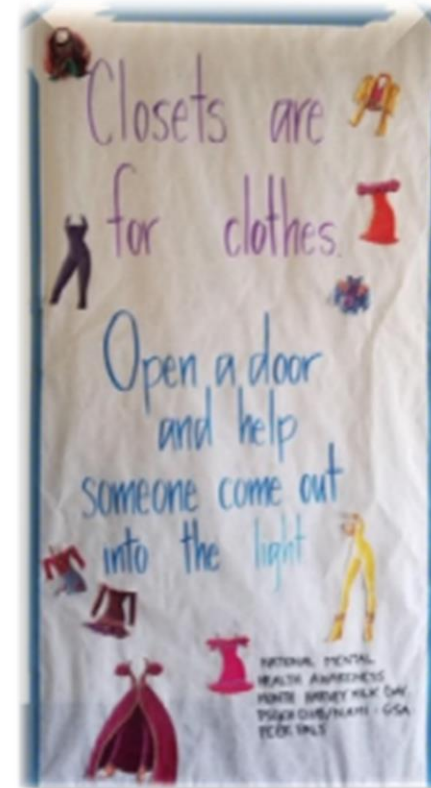 Closets are
for clothes.
Open a door
and help
someone come out
into the light
NATIONAL MENTAL
HEALTH AWARENESS
MONTH HARVEY MILK DAY
PSYCH CLUB/NAMI - GSA
PEER PALS